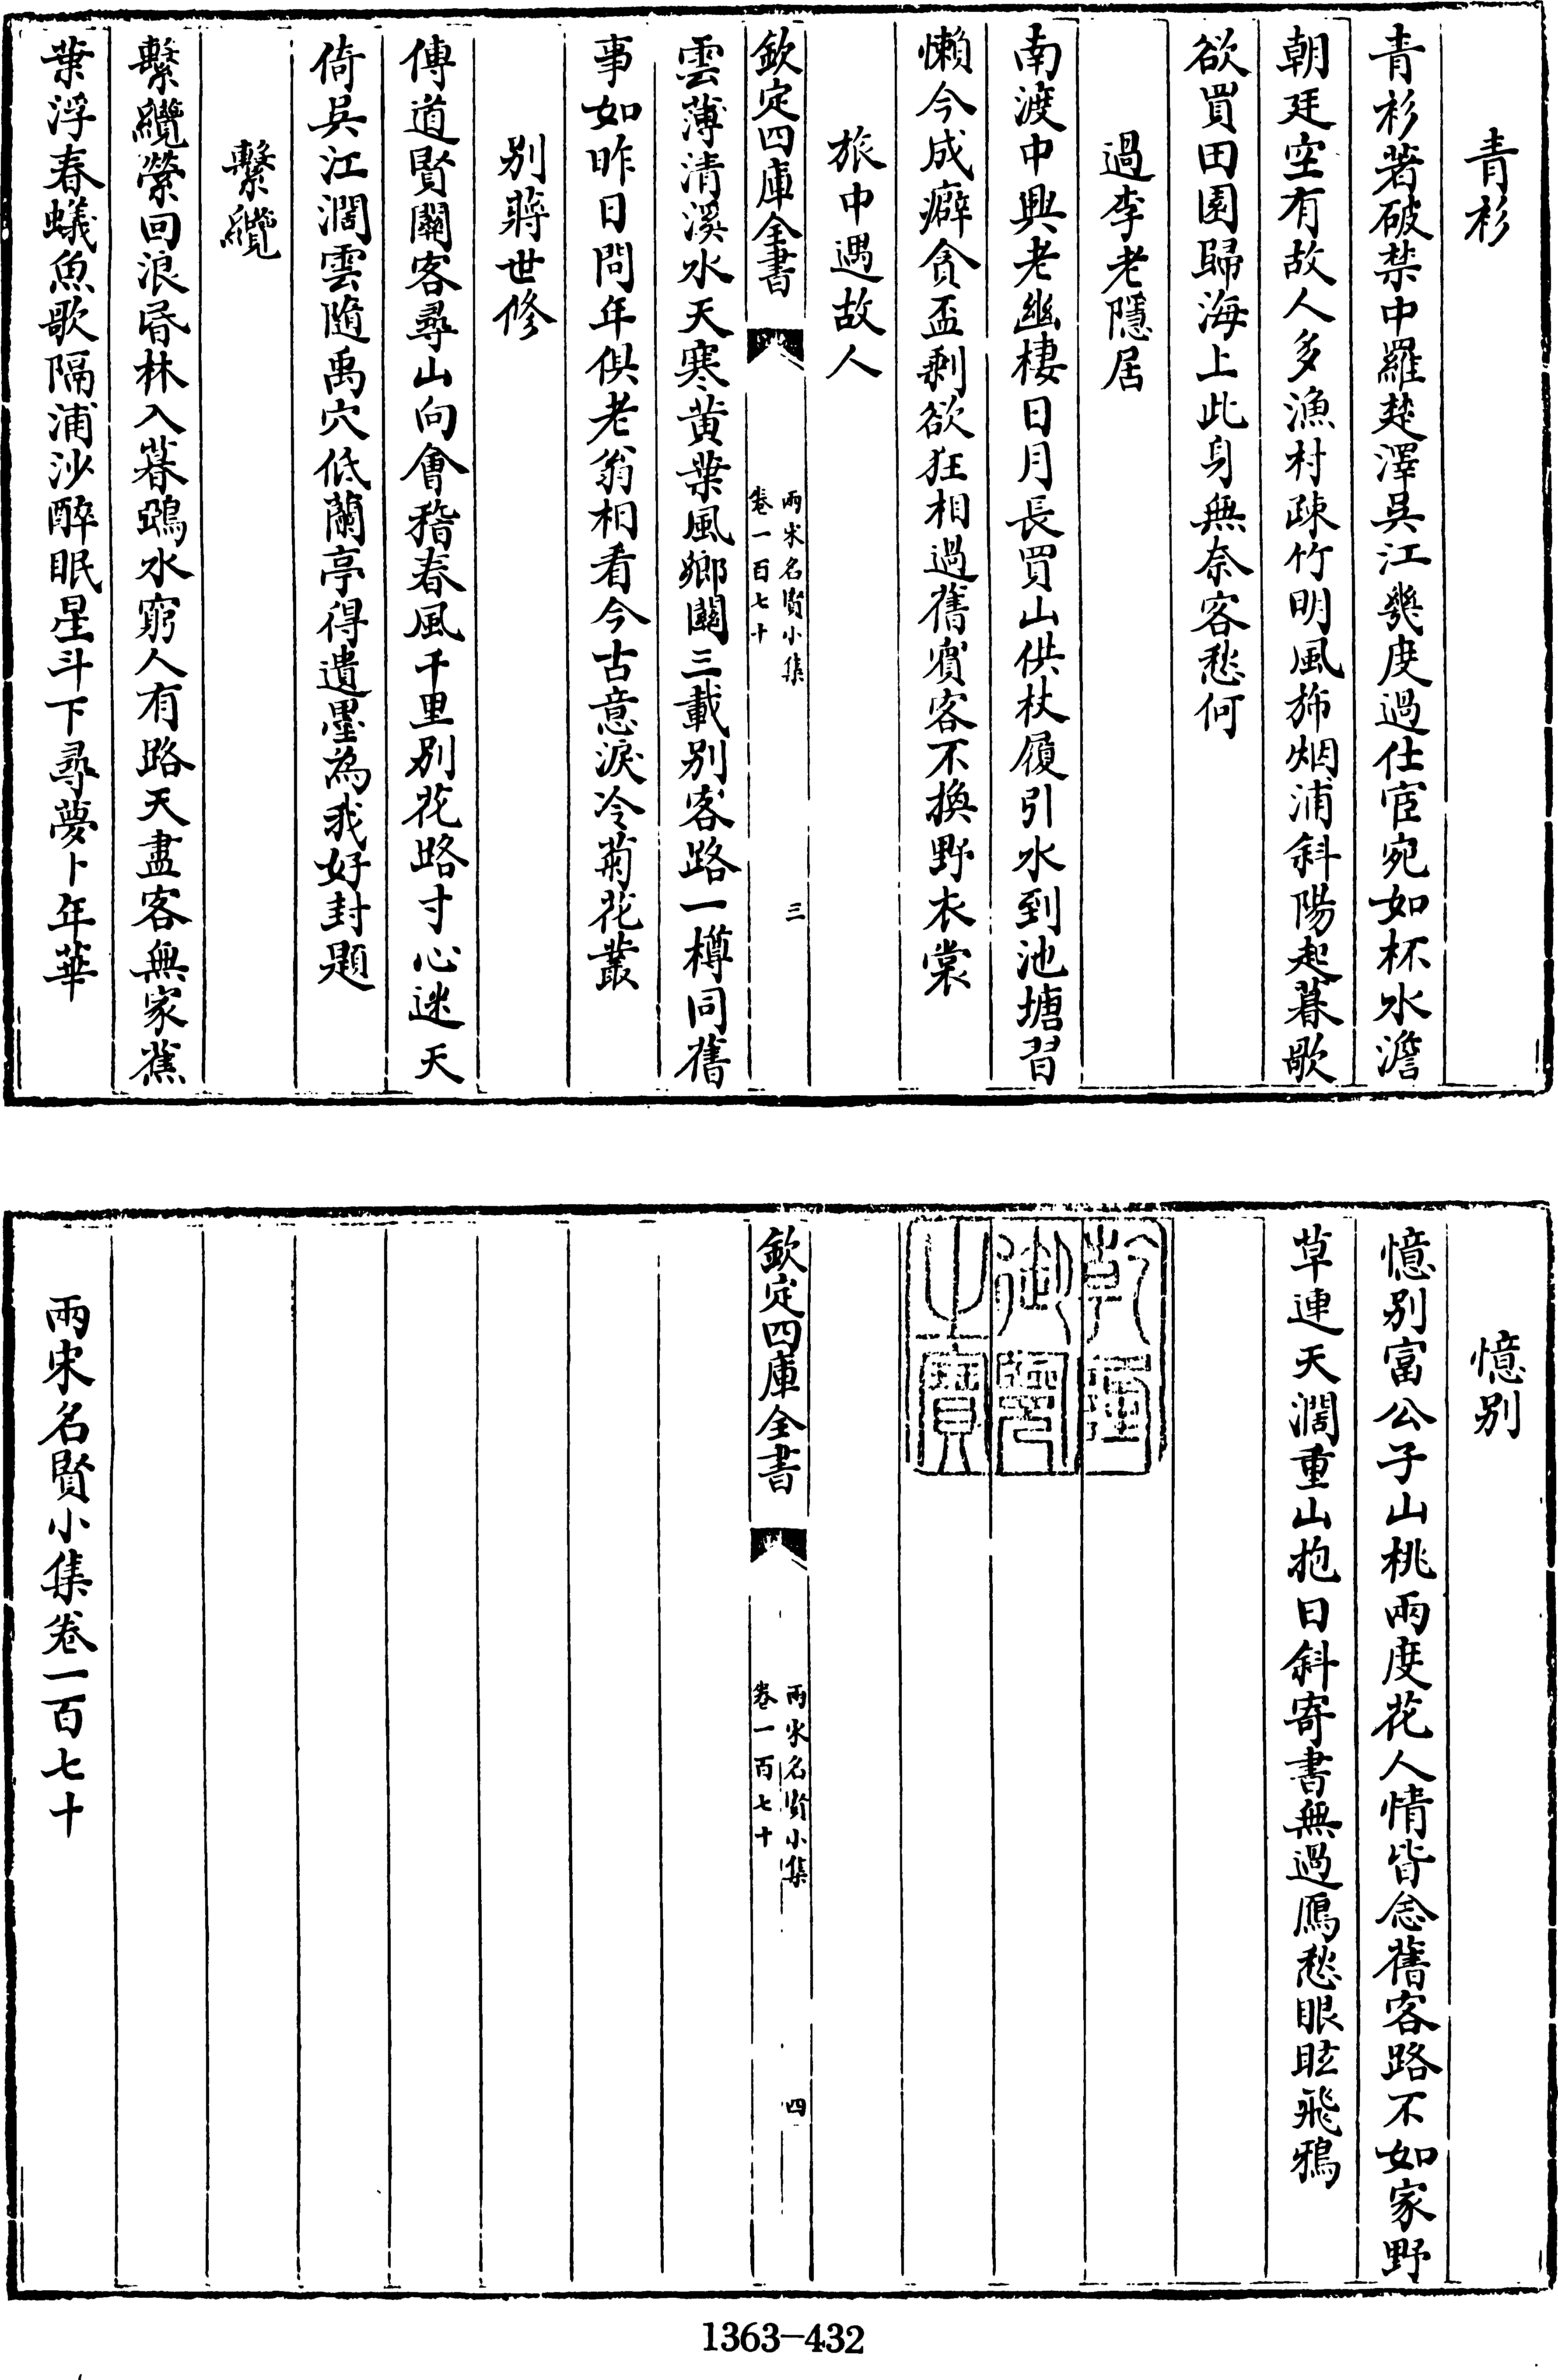 青衫
青衫著破禁中羅楚澤吳江幾度過仕宦宛如杯水澹
朝廷空有故人多漁村疎竹明風斾烟浦斜陽起暮歌
欲買田園歸海上此身無奈客愁何
過李老隱居
南渡中興老幽棲日月長買山供杖履引水到池塘習
懶今成癖貪盃剩欲狂相過舊賓客不換野衣裳
旅中遇故人
欽定四庫全書
兩宋名賢小集
卷一百七十
三
雲薄清溪水天寒黄葉風鄉關三載别客路一樽同舊
事如昨日問年俱老翁相看今古意淚冷菊花叢
别蔣世修
傳道賢關客尋山向會稽春風千里别花路寸心迷天
倚吳江濶雲隨禹穴低蘭亭得遺墨為我好封題
繫纜
繫纜縈回浪昏林入暮鴉水窮人有路天盡客無家蕉
葉浮春蟻魚歌隔浦沙醉眠星斗下尋夢卜年華
憶别
憶别富公子山桃兩度花人情皆念舊客路不如家野
草連天濶重山抱日斜寄書無過鴈愁眼眩飛鴉
乾隆
御覽
之寶
欽定四庫全書
兩宋名賢小集
卷一百七十
四
兩宋名賢小集卷一百七十
1363-432